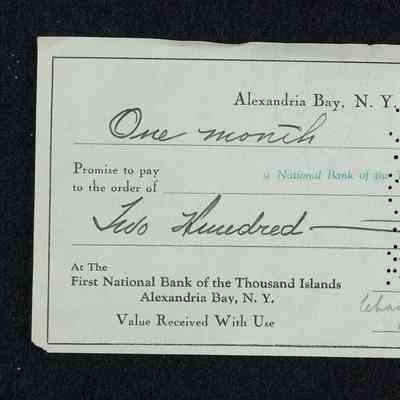 Alexandria Bay, N. Y.
One month
Promise to pay
to the order of
National Bank of the
Two Hundred
At The
First National Bank of the Thousand Islands
Alexandria Bay, N. Y.
Value Received With Use